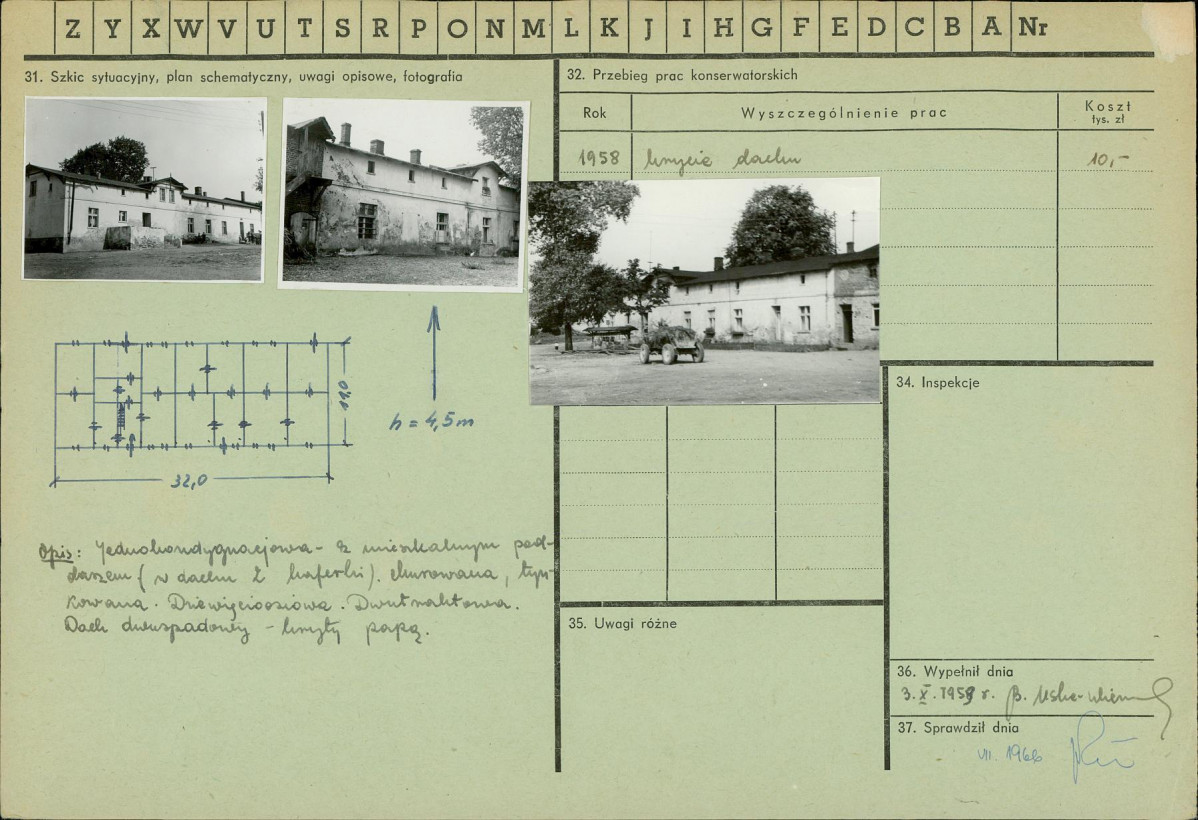 Z Y X W V U T S R P O N M L K J I H G F E D C B A Nr
31. Szkic sytuacyjny, plan schematyczny, uwagi opisowe, fotografia
32,0
11,0
h = 4,5 m
Opis: Jednokondygnacjowa - z mieszkalnym pod-
daszem (w dachu 2 kaferki). Murowana, tyn-
kowana. Dziewięcioosiowa. Dwutraktowa.
Dach dwuspadowy - kryty papą.
32. Przebieg prac konserwatorskich
Rok Wyszczególnienie prac Koszt
tys. zł
1958 krycie dachu 10,-
34. Inspekcje
35. Uwagi różne
36. Wypełnił dnia
3.X.1959 r. B.
37. Sprawdził dnia
VII. 1966